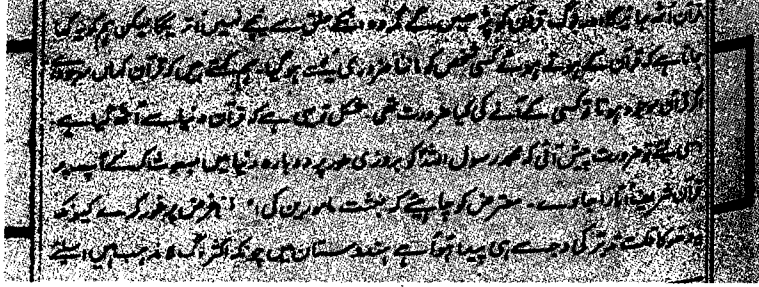 قرآن اٹھ جائیگا اور لوگ قرآن کو پڑھیں گے مگر وہ انکے حلق سے نیچے نہیں اتریگا لیکن پھر کہا
جاتا ہے کہ قرآن کے ہوتے ہوئے کسی شخص کو ماننا ضروری کیسے ہوگیا۔ ہم کہتے ہیں کہ قرآن کہاں موجود ہے
اگر قرآن موجود ہوتا تو کسی کے آنے کی کیا ضرورت تھی۔ مشکل تو یہی ہے کہ قرآن دنیا سے اٹھ گیا ہے
اسی لئے تو ضرورت پیش آئی کہ محمد رسول اللہ کو بروزی طور پر دوبارہ دنیا میں مبعوث کر کے آپ پر
قرآن شریف اتارا جاوے۔ معترض کو چاہیئے کہ بعثت مامورین کی غرض پر غور کرے کیونکہ
دھوکا قلت تدبر کی وجہ سے ہی پیدا ہوتا ہے ہندوستان میں چونکہ اکثر لوگ مذہب میں اسلئے